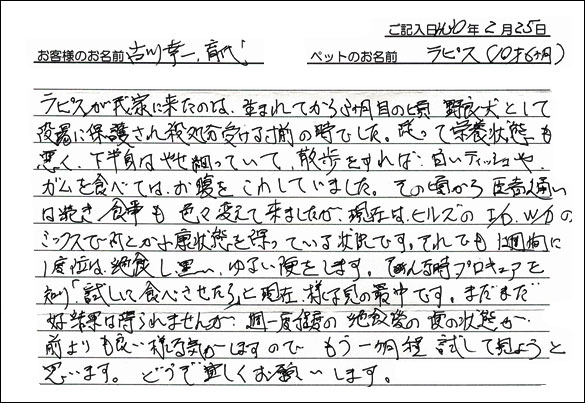 ご記入日 2010年2月25日
お客様のお名前 吉川幸一、育代 ペットのお名前 ラピス(10才6ヶ月)
ラピスが我家に来たのは、生まれてから5ヶ月目の頃 野良犬として
役場に保護され殺処分受ける寸前の時でした。従って栄養状態も
悪く、下半身はやせ細っていて、散歩をすれば、白いティッシュや
ガムを食べては、お腹をこわしていました。その頃から医者通い
は続き 食事も色々変えて来ましたが、現在は、ヒルズのI/D、W/Dの
ミックスで何とか小康状態を保っている状況です。それでも1週間に
1度位は、絶食し黒い、ゆるい便をします。そんな時プロキュアを
知り「試しに食べさせたら」と現在、様子見の最中です。まだまだ
好結果は得られませんが、週一度程度の絶食後の便の状態が、
前よりも良い様な気がしますので もう一ヶ月程 試して見ようと
思います。どうぞ宜しくお願いします。